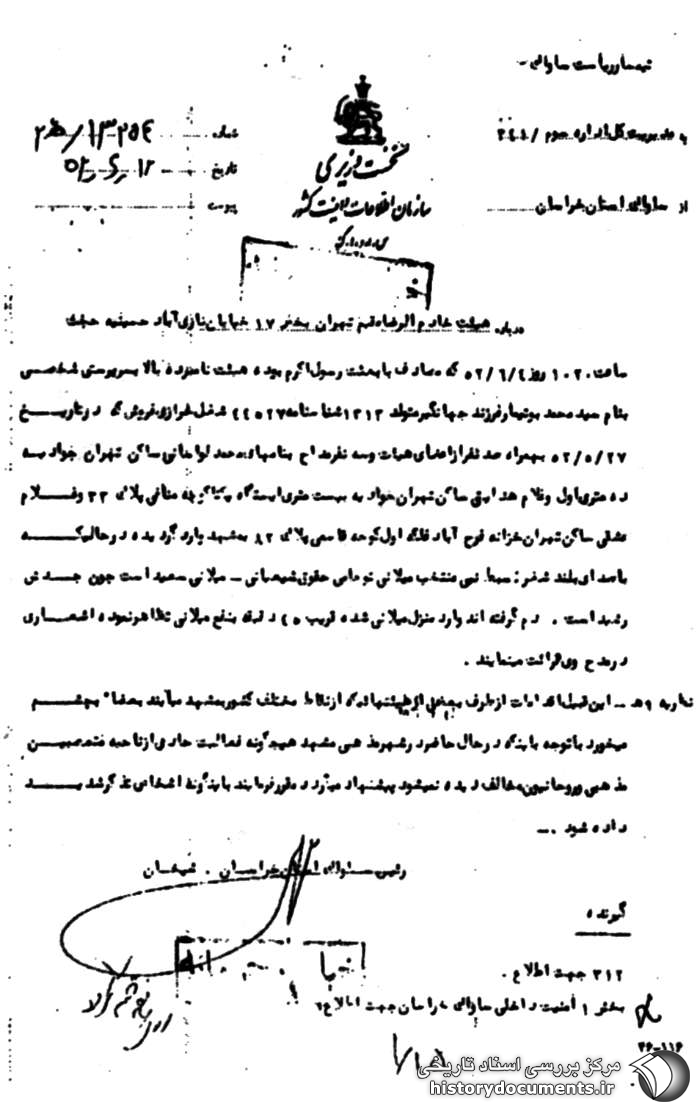 تیمسار ریاست ساواک
به مدیریت کل اداره سوم / ۳۴۱
از ساواک استان خراسان
نخست وزیری
سازمان اطلاعات و امنیت کشور
س.ا.و.ا.ک
شماره
تاریخ ۱۲ / ۶ / ۵۲
پیوست
درباره هیئت خادم الرضا مقیم تهران بخش ۱۷ خیابان نازی‌آباد حسینیه
ساعت ۱۰۲۰ روز ۵۲/۶/۴ که مصادف با بعثت رسول اکرم بوده هیئت نامبرده بالا بسرپرستی شخصی
بنام سید محمد بوتیمار فرزند جهانگیر متولد ۱۳۱۳ شناسنامه شغل خرازی فروش که در تاریخ
۵۲/۵/۲۷ بهمراه صد نفر از اعضای هیات وسه نفر مداح بنامهای محمد لواسانی ساکن تهران جوادیه
ده متری اول و غلام هدایتی ساکن تهران جوادیه بیست متری ایستگاه کوچه منافی پلاک ۳۳ و غلام
عشقی ساکن تهران خزانه فرح آباد فلکه اول کوچه قاسمی پلاک ۸۲ به مشهد وارد گردیده در حالیکه
با صدای بلند شعر: سبط نبی منتخب میلانی حقوق شیعیانی – میلانی سعید است چون جدش
رشید است . دم گرفته اند وارد منزل میلانی شده قریب دقیقه بنفع میلانی تظاهر نموده اشعاری
در مدح وی قرائت مینمایند .
نظریه – این قبیل اقدامات از طرف بعضی از هیئتهائیکه از نقاط مختلف کشور بمشهد میآیند بعضا" بچشم
میخورد با توجه باینکه در حال حاضر در شهر مذهبی مشهد هیچگونه فعالیت حادی از ناحیه متعصبین
مذهبی و روحانیون مخالف دیده نمیشود پیشنهاد میگردد مقرر فرمایند باینگونه اشخاص تذکر شدید
داده شود .–
رئیس ساواک استان خراسان . شیخان
گیرنده
۳۱۲ جهت اطلاع .
بخش ۱ امنیت داخلی ساواک خراسان جهت اطلاع
۳۶-۱۱۶
۷۱۵
مرکز بررسی اسناد تاریخی
historydocuments.ir